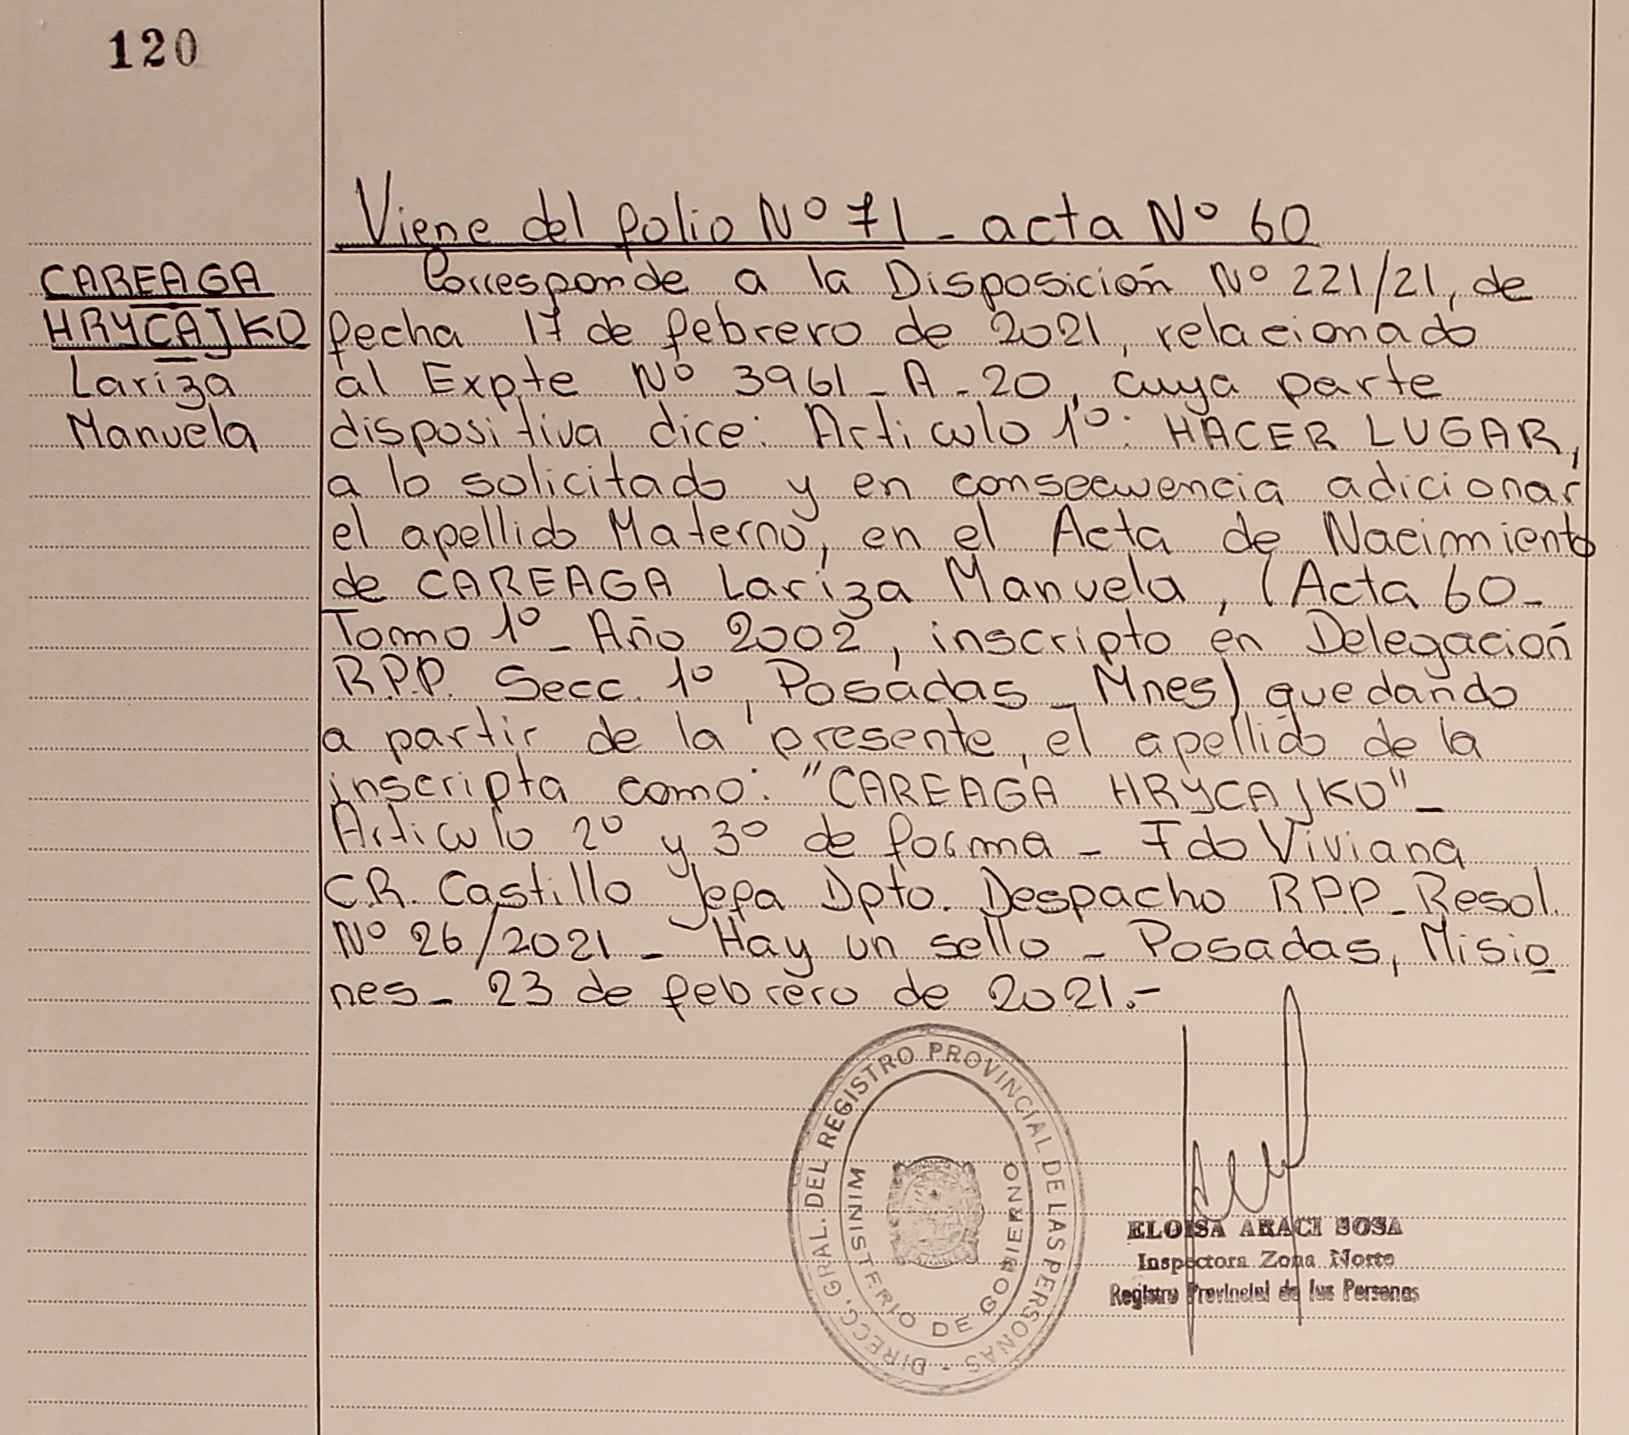 120
Viene del folio Nº 71 - acta Nº 60
CAREAGA
HRYCAJKO
Lariza
Manuela
Corresponde a la Disposición Nº 221/21, de
fecha 17 de febrero de 2021, relacionado
al Expte Nº 3961-A-20, cuya parte
dispositiva dice: Articulo 1º: HACER LUGAR,
a lo solicitado y en consecuencia adicionar
el apellido Materno, en el Acta de Nacimiento
de CAREAGA Lariza Manuela, (Acta 60-
Tomo 1º - Año 2002, inscripto en Delegación
R.P.P. Secc. 1º, Posadas - Mnes) quedando
a partir de la presente, el apellido de la
inscripta como: "CAREAGA HRYCAJKO"-
Articulo 2º y 3º de forma - Fdo Viviana
C.R. Castillo Jefa Dpto. Despacho RPP-Resol.
Nº 26/2021 - Hay un sello - Posadas, Misio
nes- 23 de febrero de 2021.-
DIRECC. GRAL. DEL REGISTRO PROVINCIAL DE LAS PERSONAS -
MINISTERIO DE GOBIERNO
ELOISA ARACI SOSA
Inspectora Zona Norte
Registro Provincial de las Personas